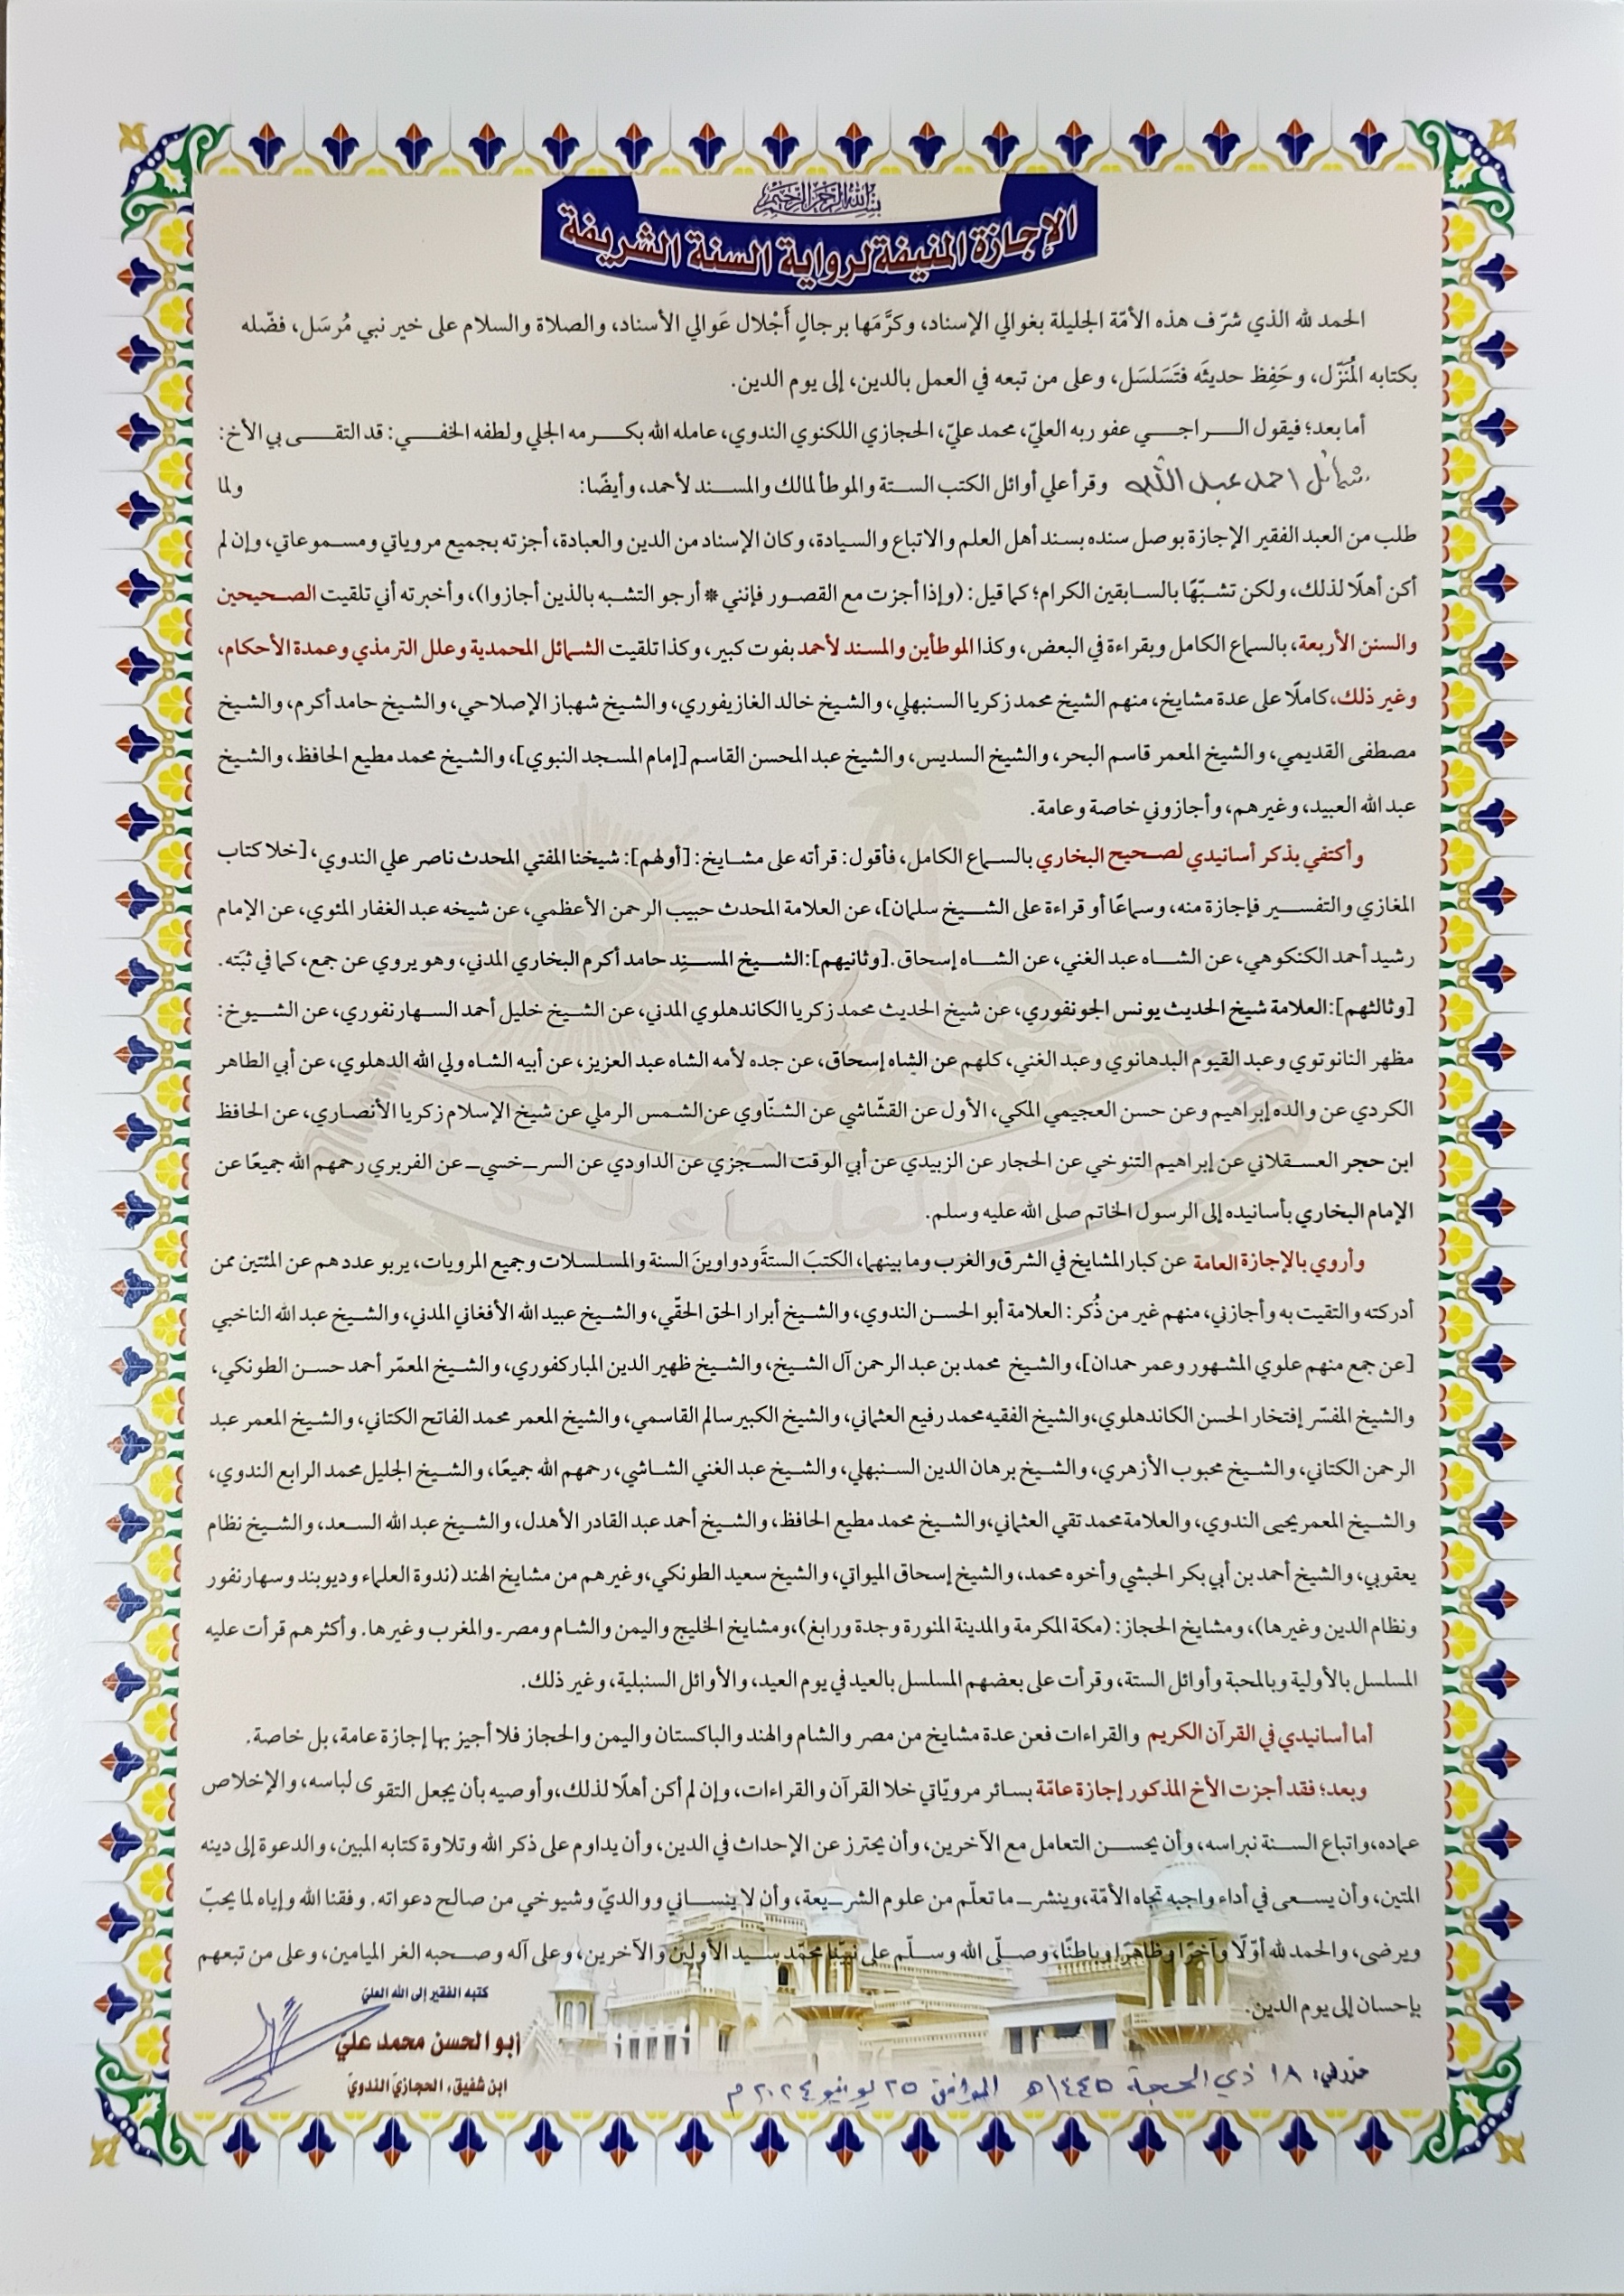 بسم الله الرحمن الرحيم
الإجازة المنيفة لرواية السنة الشريفة
الحمد لله الذي شرّف هذه الأمّة الجليلة بغوالي الإسناد، وكرَّمَها برجالٍ أَجْلال عَوالي الأسناد، والصلاة والسلام على خير نبي مُرسَل، فضّله
بكتابه المُنَزّل، وحَفِظ حديثَه فتَسَلسَل، وعلى من تبعه في العمل بالدين، إلى يوم الدين.
أما بعد؛ فيقول الراجي عفو ربه العليّ، محمد عليّ، الحجازي اللكنوي الندوي، عامله الله بكرمه الجلي ولطفه الخفي: قد التقى بي الأخ:
شمائل احمد عبد الله وقرأ علي أوائل الكتب الستة والموطأ لمالك والمسند لأحمد، وأيضًا: ولما
طلب من العبد الفقير الإجازة بوصل سنده بسند أهل العلم والاتباع والسيادة، وكان الإسناد من الدين والعبادة، أجزته بجميع مروياتي ومسموعاتي، وإن لم
أكن أهلًا لذلك، ولكن تشبّهًا بالسابقين الكرام؛ كما قيل: (وإذا أجزت مع القصور فإنني * أرجو التشبه بالذين أجازوا)، وأخبرته أني تلقيت الصحيحين
والسنن الأربعة، بالسماع الكامل وبقراءة في البعض، وكذا الموطأين والمسند لأحمد بفوت كبير، وكذا تلقيت الشمائل المحمدية وعلل الترمذي وعمدة الأحكام،
وغير ذلك، كاملًا على عدة مشايخ، منهم الشيخ محمد زكريا السنبهلي، والشيخ خالد الغازيفوري، والشيخ شهباز الإصلاحي، والشيخ حامد أكرم، والشيخ
مصطفى القديمي، والشيخ المعمر قاسم البحر، والشيخ السديس، والشيخ عبد المحسن القاسم [إمام المسجد النبوي]، والشيخ محمد مطيع الحافظ، والشيخ
عبد الله العبيد، وغيرهم، وأجازوني خاصة وعامة.
وأكتفي بذكر أسانيدي لصحيح البخاري بالسماع الكامل، فأقول: قرأته على مشايخ: [أولهم]: شيخنا المفتي المحدث ناصر علي الندوي، [خلا كتاب
المغازي والتفسير فإجازة منه، وسماعًا أو قراءة على الشيخ سلمان]، عن العلامة المحدث حبيب الرحمن الأعظمي، عن شيخه عبد الغفار المئوي، عن الإمام
رشيد أحمد الكنكوهي، عن الشاه عبد الغني، عن الشاه إسحاق. [وثانيهم]: الشيخ المسنِد حامد أكرم البخاري المدني، وهو يروي عن جمع، كما في ثبَته.
[وثالثهم]: العلامة شيخ الحديث يونس الجونفوري، عن شيخ الحديث محمد زكريا الكاندهلوي المدني، عن الشيخ خليل أحمد السهارنفوري، عن الشيوخ:
مظهر النانوتوي وعبد القيوم البدهانوي وعبد الغني، كلهم عن الشاه إسحاق، عن جده لأمه الشاه عبد العزيز، عن أبيه الشاه ولي الله الدهلوي، عن أبي الطاهر
الكردي عن والده إبراهيم وعن حسن العجيمي المكي، الأول عن القشّاشي عن الشنّاوي عن الشمس الرملي عن شيخ الإسلام زكريا الأنصاري، عن الحافظ
ابن حجر العسقلاني عن إبراهيم التنوخي عن الحجار عن الزبيدي عن أبي الوقت السجزي عن الداودي عن السرخسي عن الفربري رحمهم الله جميعًا عن
الإمام البخاري بأسانيده إلى الرسول الخاتم صلى الله عليه وسلم.
وأروي بالإجازة العامة عن كبار المشايخ في الشرق والغرب وما بينهما، الكتبَ الستةَ ودواوينَ السنة والمسلسلات وجميع المرويات، يربو عددهم عن المئتين ممن
أدركته والتقيت به وأجازني، منهم غير من ذُكر: العلامة أبو الحسن الندوي، والشيخ أبرار الحق الحقّي، والشيخ عبيد الله الأفغاني المدني، والشيخ عبد الله الناخبي
[عن جمع منهم علوي المشهور وعمر حمدان]، والشيخ محمد بن عبد الرحمن آل الشيخ، والشيخ ظهير الدين المباركفوري، والشيخ المعمّر أحمد حسن الطونكي،
والشيخ المفسّر إفتخار الحسن الكاندهلوي، والشيخ الفقيه محمد رفيع العثماني، والشيخ الكبير سالم القاسمي، والشيخ المعمر محمد الفاتح الكتاني، والشيخ المعمر عبد
الرحمن الكتاني، والشيخ محبوب الأزهري، والشيخ برهان الدين السنبهلي، والشيخ عبد الغني الشاشي، رحمهم الله جميعًا، والشيخ الجليل محمد الرابع الندوي،
والشيخ المعمر يحيى الندوي، والعلامة محمد تقي العثماني، والشيخ محمد مطيع الحافظ، والشيخ أحمد عبد القادر الأهدل، والشيخ عبد الله السعد، والشيخ نظام
يعقوبي، والشيخ أحمد بن أبي بكر الحبشي وأخوه محمد، والشيخ إسحاق الميواتي، والشيخ سعيد الطونكي، وغيرهم من مشايخ الهند (ندوة العلماء وديوبند وسهارنفور
ونظام الدين وغيرها)، ومشايخ الحجاز: (مكة المكرمة والمدينة المنورة وجدة ورابغ)، ومشايخ الخليج واليمن والشام ومصر والمغرب وغيرها. وأكثرهم قرأت عليه
المسلسل بالأولية وبالمحبة وأوائل الستة، وقرأت على بعضهم المسلسل بالعيد في يوم العيد، والأوائل السنبلية، وغير ذلك.
أما أسانيدي في القرآن الكريم والقراءات فعن عدة مشايخ من مصر والشام والهند والباكستان واليمن والحجاز فلا أجيز بها إجازة عامة، بل خاصة.
وبعد؛ فقد أجزت الأخ المذكور إجازة عامّة بسائر مرويّاتي خلا القرآن والقراءات، وإن لم أكن أهلًا لذلك، وأوصيه بأن يجعل التقوى لباسه، والإخلاص
عماده، واتباع السنة نبراسه، وأن يحسن التعامل مع الآخرين، وأن يحترز عن الإحداث في الدين، وأن يداوم على ذكر الله وتلاوة كتابه المبين، والدعوة إلى دينه
المتين، وأن يسعى في أداء واجبه تجاه الأمّة، وينشر ما تعلّم من علوم الشريعة، وأن لا ينساني ووالديّ وشيوخي من صالح دعواته. وفقنا الله وإياه لما يحبّ
ويرضى، والحمد لله أوّلًا وآخرًا وظاهرًا وباطنًا، وصلّى الله وسلّم على نبيّنا محمّد سيد الأولين والآخرين، وعلى آله وصحبه الغر الميامين، وعلى من تبعهم
بإحسان إلى يوم الدين.
كتبه الفقير إلى الله العليّ
أبو الحسن محمد عليّ
ابن شفيق، الحجازيّ الندويّ
حرر في: ١٨ ذي الحجة ١٤٤٥هـ الموافق ٢٥ يونيو ٢٠٢٤م